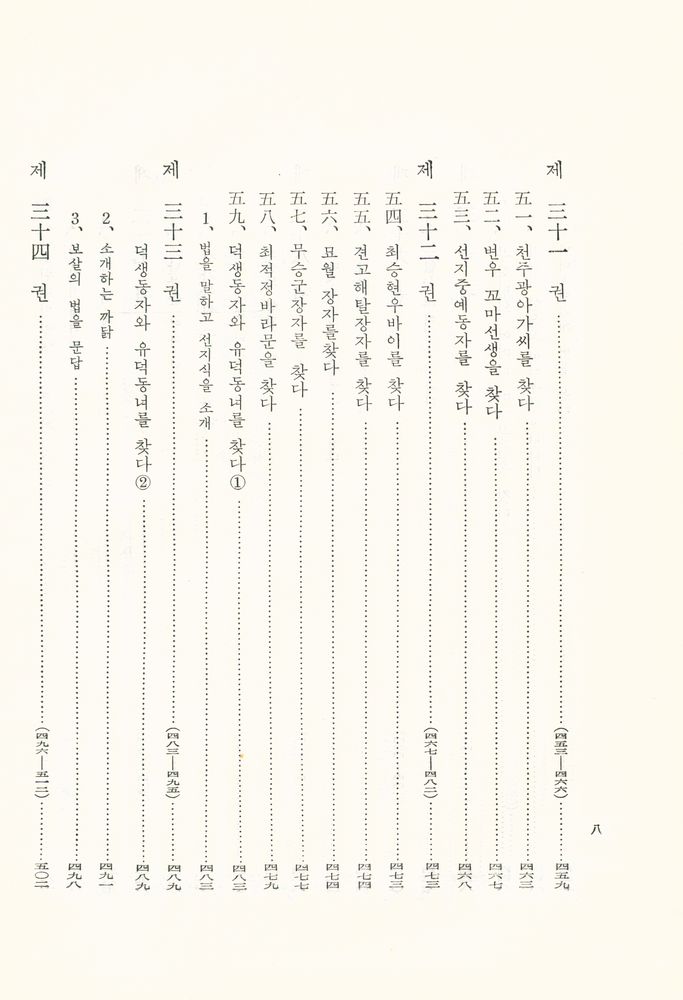 八
제 三十一 권 ……（四五三—四六六）…… 四五九
五一、천주광아가씨를 찾다 …… 四六三
五二、변우 꼬마선생을 찾다 …… 四六七
五三、선지중예동자를 찾다 …… 四六八
제 三十二 권 ……（四六七—四八二）…… 四七三
五四、최승현우바이를 찾다 …… 四七三
五五、견고해탈장자를 찾다 …… 四七四
五六、묘월 장자를찾다 …… 四七四
五七、무승군장자를 찾다 …… 四七七
五八、최적정바라문을 찾다 …… 四七九
五九、덕생동자와 유덕동녀를 찾다① …… 四八三
1、법을 말하고 선지식을 소개 …… 四八三
제 三十三 권 ……（四八三—四九五）…… 四八九
덕생동자와 유덕동녀를 찾다② …… 四八九
2、소개하는 까닭 …… 四九一
3、보살의 법을 문답 …… 四九八
제 三十四 권 ……（四九六—五一二）…… 五〇二